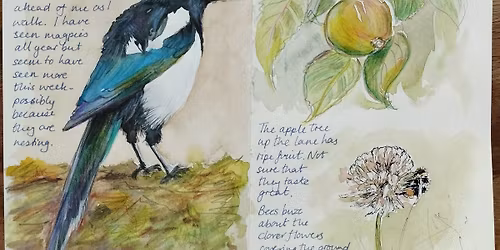 ahead of me as I
walk. I have
seen magpies
all year but
seem to have
seen more
this week -
possibly
because
they are
nesting.
The apple tree
up the lane has
ripe fruit. Not
sure that
they taste
great.
Bees buzz
about the
clover flowers
covering the ground